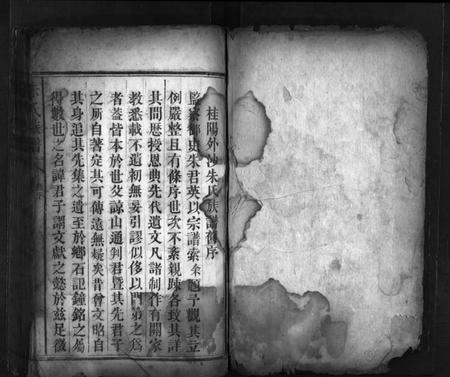 桂陽外沙朱氏族譜舊序
監察御史朱君英以宗譜索余題予觀其立
例嚴整且有條序世次不紊親踈各致其詳
其間歷授恩典先代遺文凡諸制作有關家
教悉載不遺初無妄引謬似侈以門第之爲
者蓋皆本於世父諒山通判君暨其先君子
之所自著定其可傳遠無疑矣昔曾文昭自
其身追其先集之遺至於鄉石記鐘銘之屬
得數世之名諱君子謂文獻之懿於茲足徵